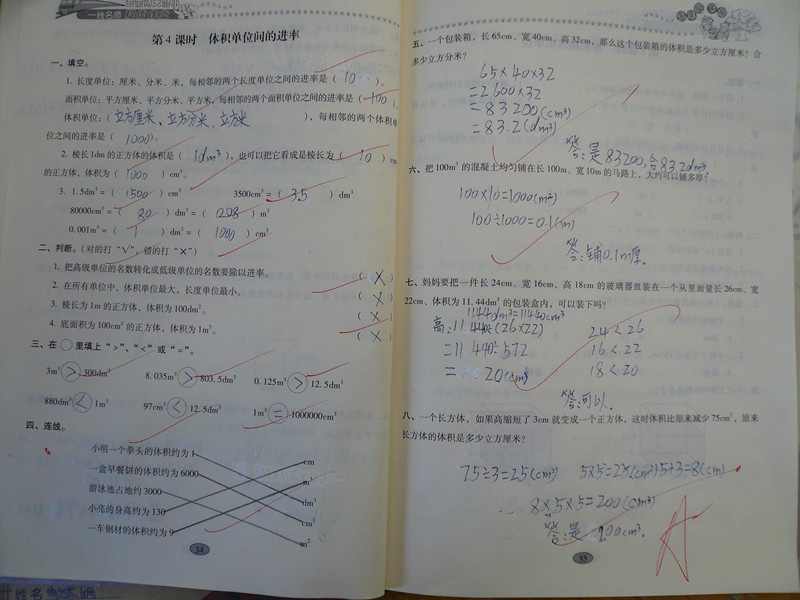 第 4 课时 体积单位间的进率
一、填空。
1. 长度单位：厘米、分米、米，每相邻的两个长度单位之间的进率是（10）。
面积单位：平方厘米、平方分米、平方米，每相邻的两个面积单位之间的进率是（100）。
体积单位：（立方厘米、立方分米、立方米），每相邻的两个体积单
位之间的进率是（1000）。
2. 棱长1dm的正方体的体积是（1dm³），也可以把它看成是棱长为（10）cm
的正方体，体积为（1000）cm³。
3. 1.5dm³=（1500）cm³ 3500cm³=（3.5）dm³
80000cm³=（80）dm³=（0.08）m³
0.001m³=（1）dm³=（1000）cm³
二、判断。（对的打“√”，错的打“×”）
1. 把高级单位的名数转化成低级单位的名数要除以进率。（×）
2. 在所有单位中，体积单位最大，长度单位最小。（×）
3. 棱长为1m的正方体，体积为100dm³。（×）
4. 底面积为100cm²的正方体，体积为1m³。（×）
三、在○里填上“>”、“<”或“=”。
3m³ > 300dm³ 8.035m³ > 803.5dm³ 0.125m³ > 12.5dm³
880dm³ < 1m³ 97cm³ < 12.5dm³ 1m³ = 1000000cm³
四、连线。
小明一个拳头的体积约为1 cm
一盒早餐饼的体积约为6000 m³
游泳池占地约3000 dm³
小亮的身高约为130 cm³
一车钢材的体积约为9 m²
34
五、一个包装箱，长65cm，宽40cm，高32cm，那么这个包装箱的体积是多少立方厘米？合
多少立方分米？
65×40×32
=2600×32
=83200(cm³)
=83.2(dm³)
答：是83200，合83.2dm³
六、把100m³的混凝土均匀铺在长100m、宽10m的马路上，大约可以铺多厚？
100×10=1000(m²)
100÷1000=0.1(m)
答：铺0.1m厚。
七、妈妈要把一件长24cm，宽16cm，高18cm的玻璃器皿装在一个从里面量长26cm，宽
22cm、体积为11.44dm³的包装盒内，可以装下吗？
11.44dm³=11440cm³
高：11440÷(26×22) 24<26
=11440÷572 16<22
=20(cm) 18<20
答：可以。
八、一个长方体，如果高缩短了3cm就变成一个正方体，这时体积比原来减少75cm³，原来
长方体的体积是多少立方厘米？
75÷3=25(cm²) 5×5=25(cm²) 5+3=8(cm)
8×5×5=200(cm³)
答：是200cm³。
35